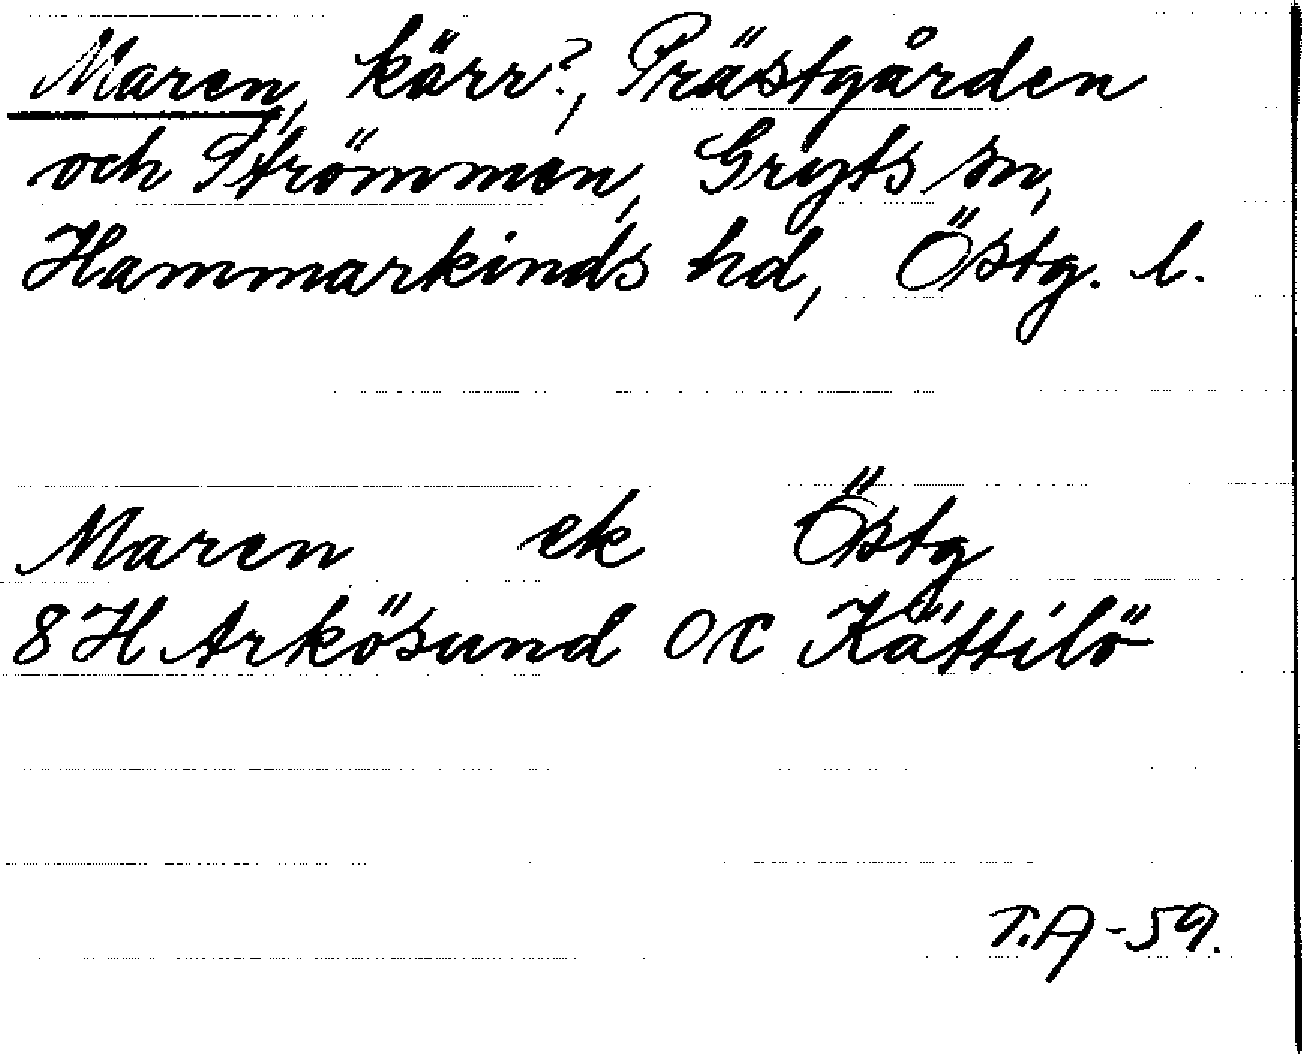 Maren, kärr?, Prästgården
och Strömmen, Gryts sn,
Hammarkinds hd, Östg. l.
Maren ek Östg
8H Arkösund OX Kättilö
T.A-59.